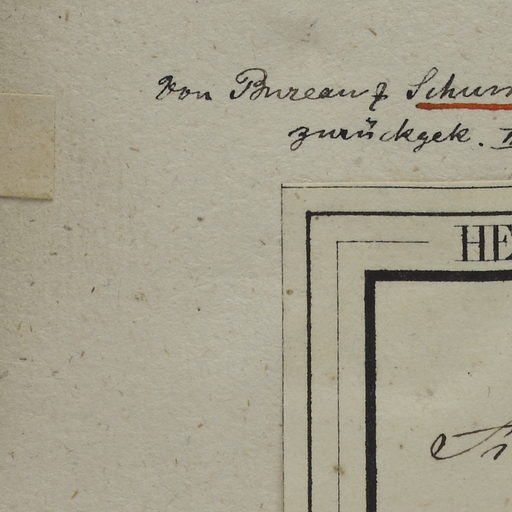 Von Bureau f Schum
zurückgek. II
HE